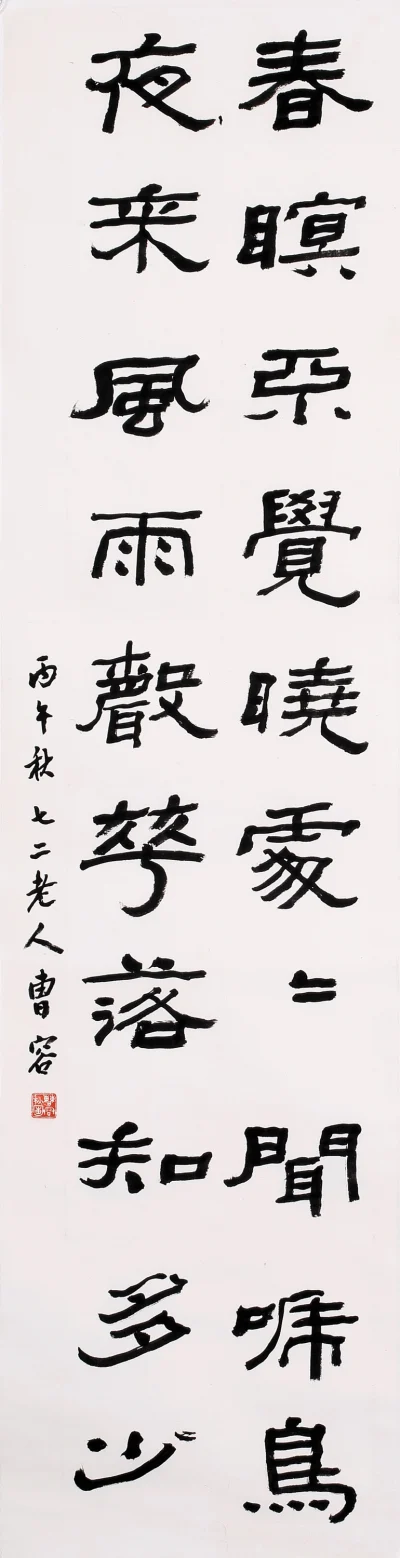 春瞑不覺曉處〻聞啼鳥
夜来風雨聲華落知多少
丙午秋七二老人曹容